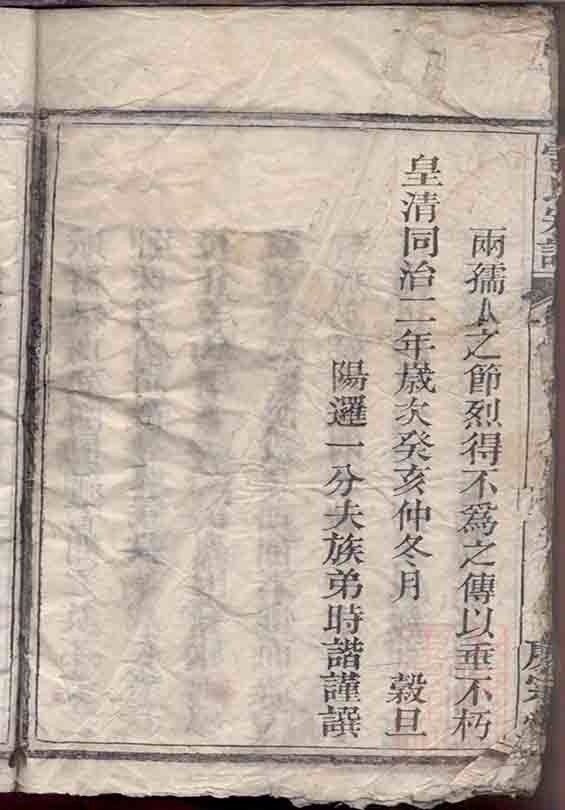 兩孺人之節烈得不爲之傳以垂不朽
皇清同治二年歲次癸亥仲冬月 穀旦
陽邏一分夫族弟時諧謹譔